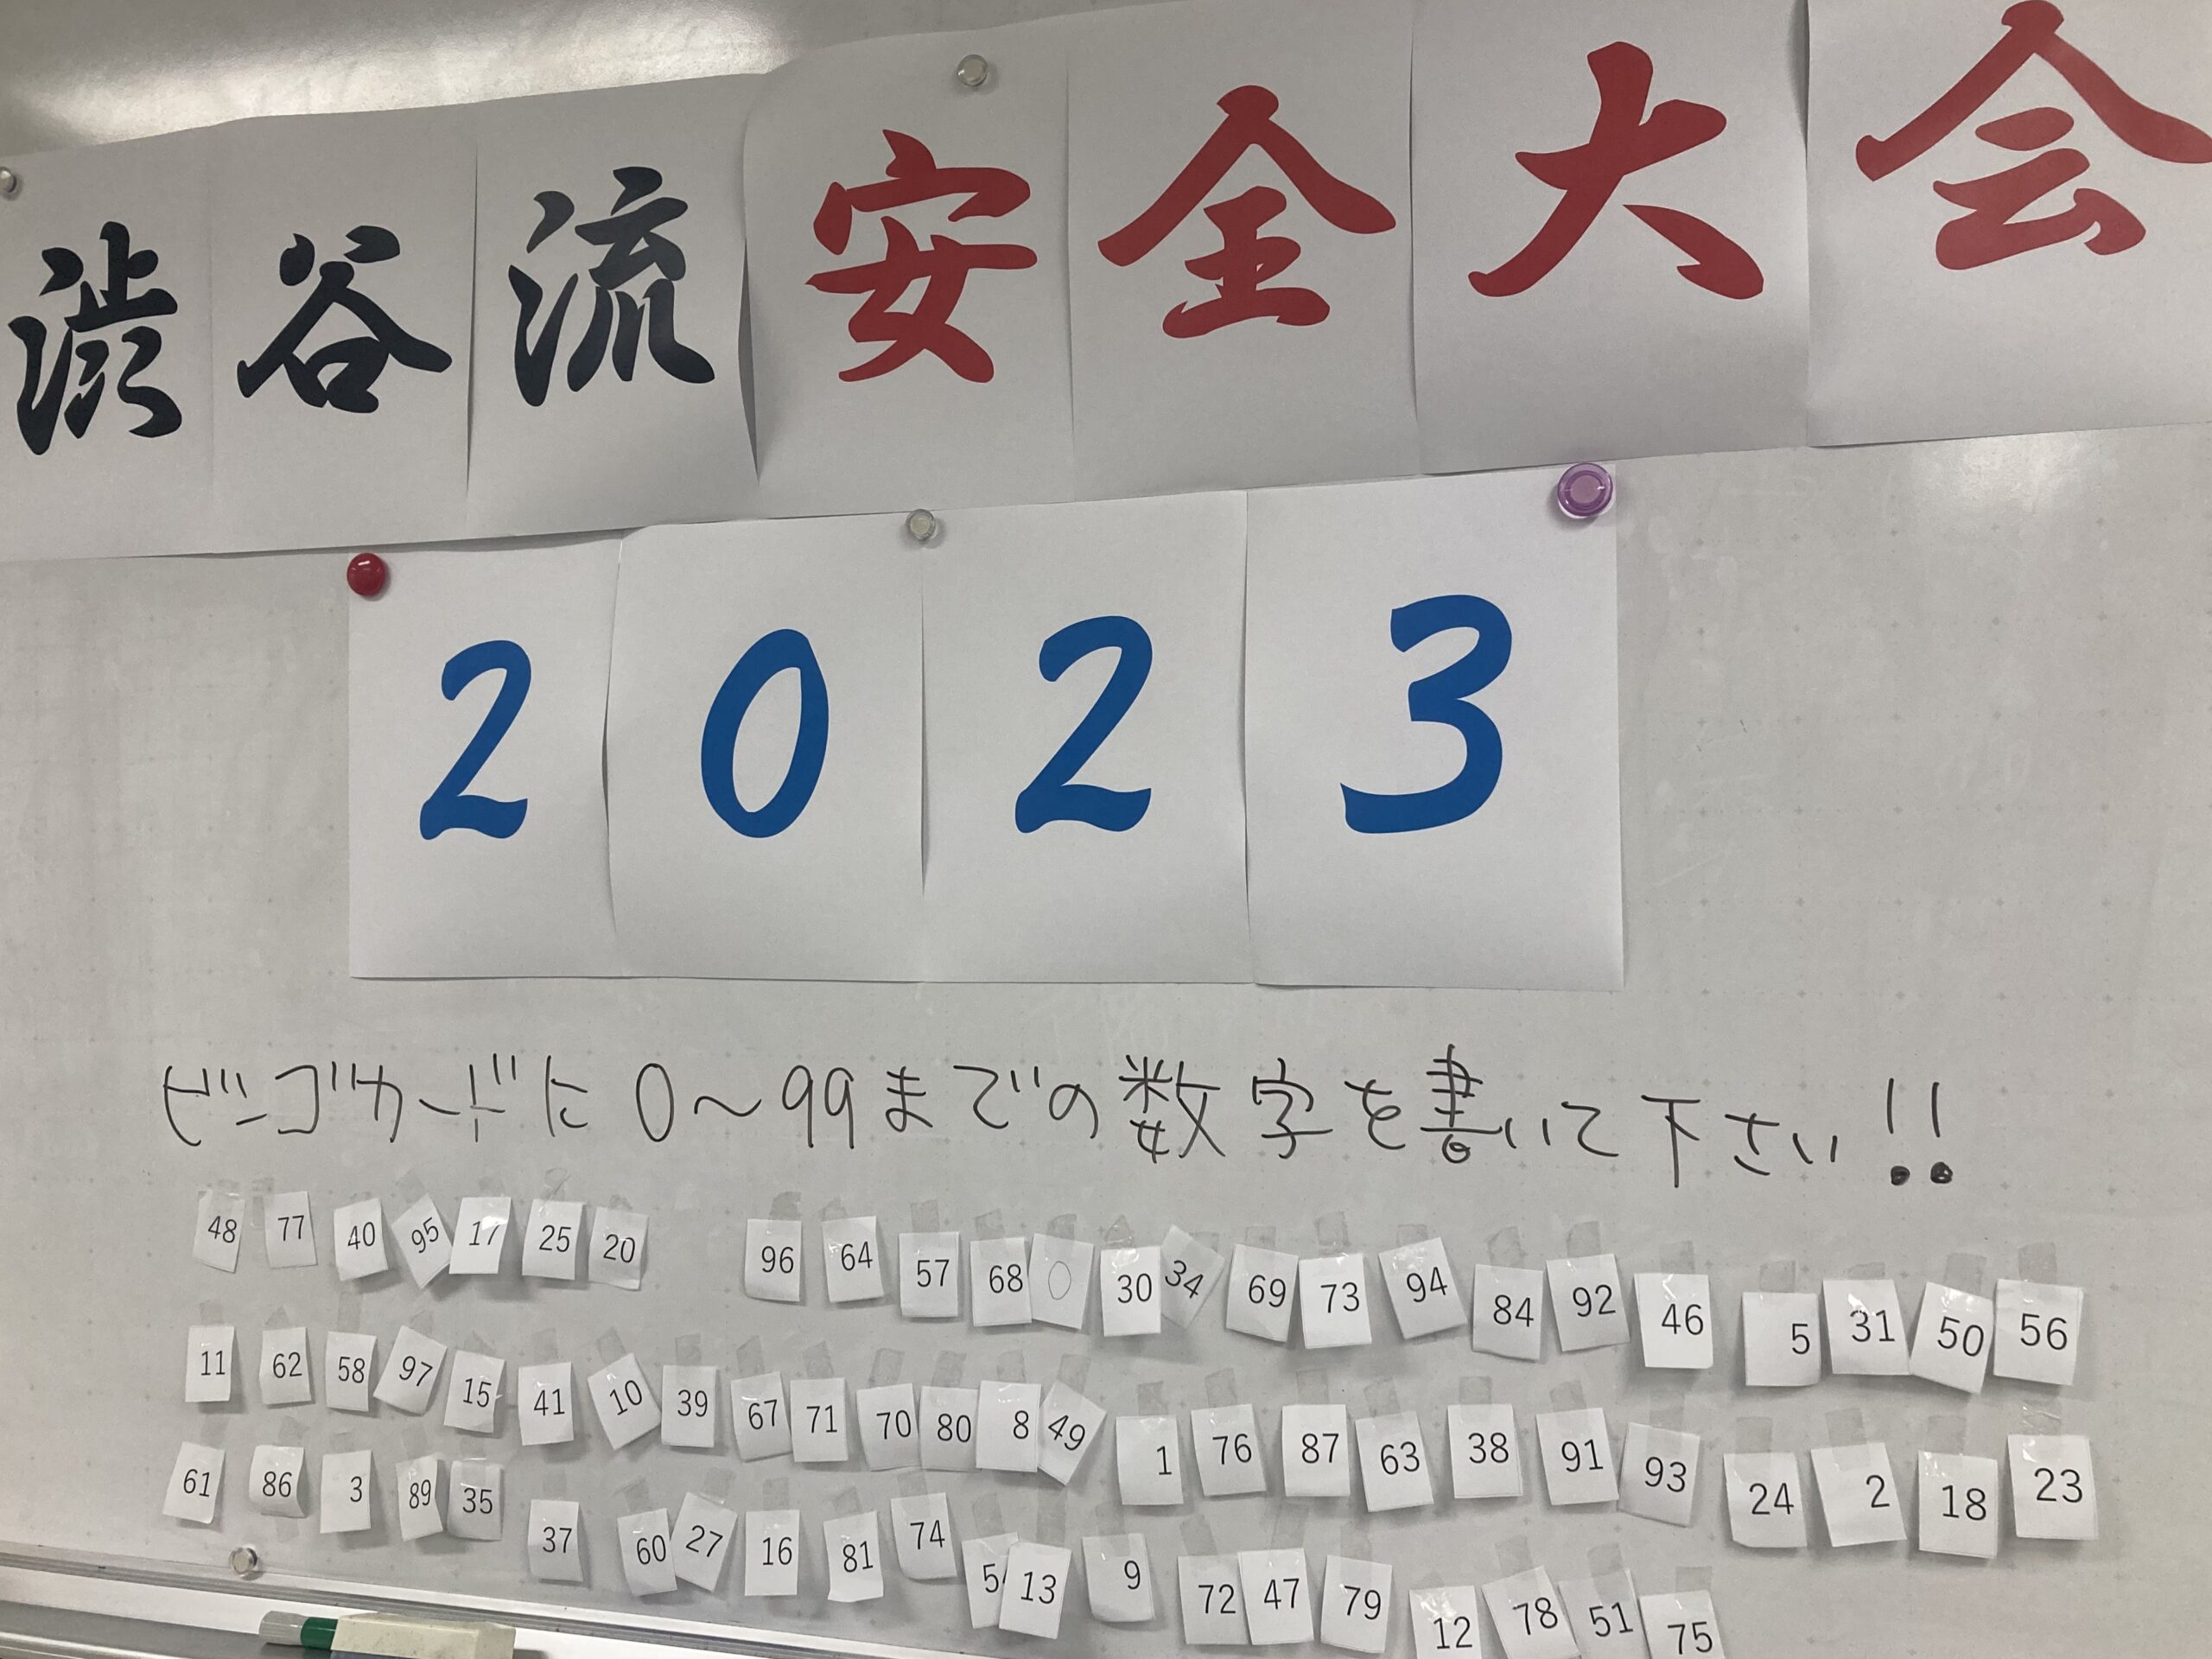 渋谷流安全大会
2023
ビンゴカードに0～99までの数字を書いて下さい!!
48 77 40 95 17 25 20 96 64 57 68 0 30 34 69 73 94 84 92 46 5 31 50 56
11 62 58 97 15 41 10 39 67 71 70 80 8 49 1 76 87 63 38 91 93 24 2 18 23
61 86 3 89 35 37 60 27 16 81 74 13 9 72 47 79 12 78 51 75